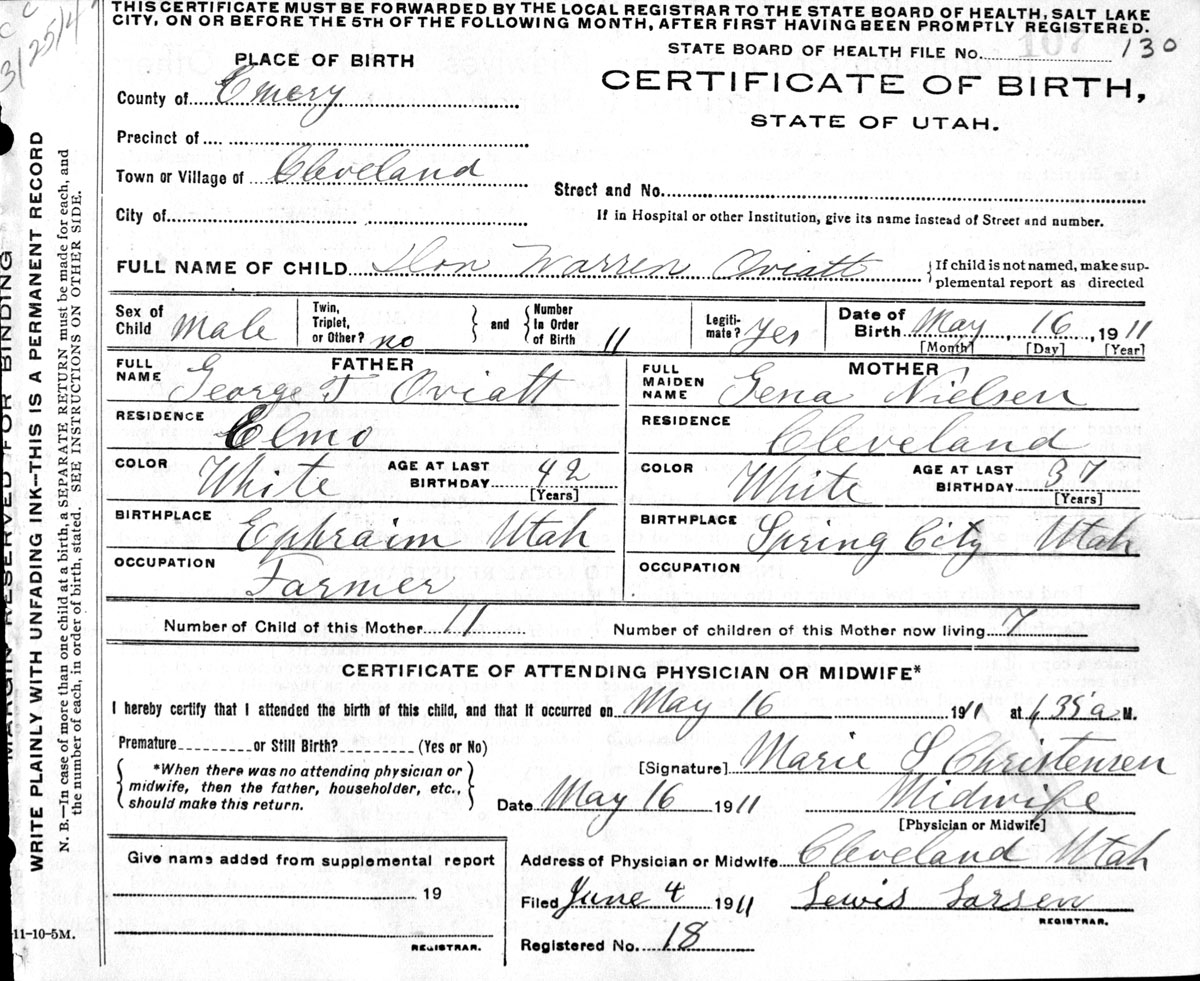 THIS CERTIFICATE MUST BE FORWARDED BY THE LOCAL REGISTRAR TO THE STATE BOARD OF HEALTH, SALT LAKE
CITY, ON OR BEFORE THE 5TH OF THE FOLLOWING MONTH, AFTER FIRST HAVING BEEN PROMPTLY REGISTERED.
3/25/4
STATE BOARD OF HEALTH FILE No. 107 130
PLACE OF BIRTH
CERTIFICATE OF BIRTH,
STATE OF UTAH.
County of Emery
Precinct of
Town or Village of Cleveland
Street and No.
City of
If in Hospital or other Institution, give its name instead of Street and number.
FULL NAME OF CHILD Don Warren Oviatt
{If child is not named, make sup-
plemental report as directed
Sex of Child Male
Twin, Triplet, or Other? no
and
Number In Order of Birth 11
Legiti-mate? Yes
Date of Birth May 16, 1911
[Month] [Day] [Year]
FATHER
FULL NAME George T Oviatt
RESIDENCE Elmo
COLOR White
AGE AT LAST BIRTHDAY 42
[Years]
BIRTHPLACE Ephraim Utah
OCCUPATION Farmer
MOTHER
FULL MAIDEN NAME Gena Nielsen
RESIDENCE Cleveland
COLOR White
AGE AT LAST BIRTHDAY 37
[Years]
BIRTHPLACE Spring City Utah
OCCUPATION
Number of Child of this Mother 11
Number of children of this Mother now living 7
CERTIFICATE OF ATTENDING PHYSICIAN OR MIDWIFE*
I hereby certify that I attended the birth of this child, and that it occurred on May 16 1911 at 35 a M.
Premature or Still Birth? (Yes or No)
*When there was no attending physician or
midwife, then the father, householder, etc.,
should make this return.
[Signature] Marie S Christensen
Date May 16 1911 Midwife
[Physician or Midwife]
Give name added from supplemental report
19
REGISTRAR.
Address of Physician or Midwife Cleveland Utah
Filed June 4 1911 Lewis Larsen
REGISTRAR.
Registered No. 18
11-10-5M.
MARGIN RESERVED FOR BINDING
WRITE PLAINLY WITH UNFADING INK—THIS IS A PERMANENT RECORD
N. B.—In case of more than one child at a birth, a SEPARATE RETURN must be made for each, and
the number of each, in order of birth, stated. SEE INSTRUCTIONS ON OTHER SIDE.